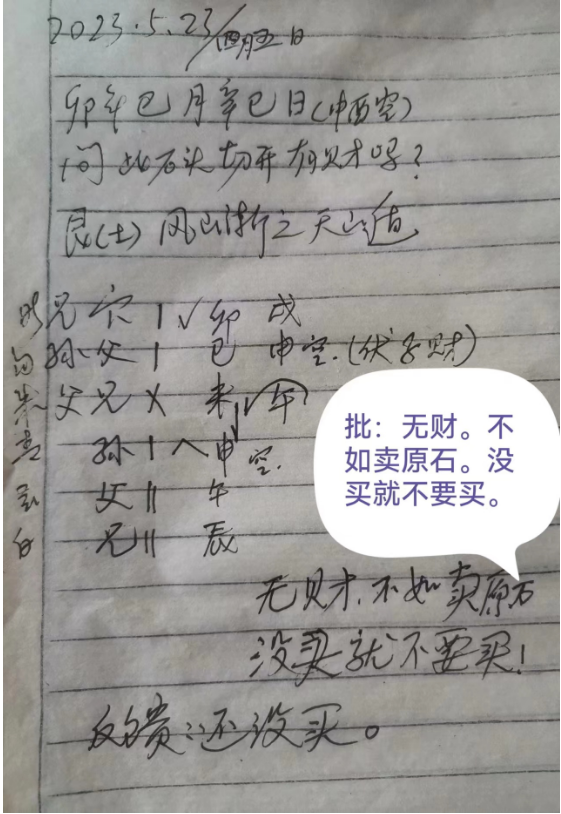 2023.5.23/四月初五日
卯年巳月辛巳日(申酉空)
问此石头切开有财吗?
艮(土) 风山渐之天山遁
兄 官 | √ 卯 戌
孙 父 | 巳 申空.(伏子财)
父 兄 X 未 √ 午
孙 | 申 空.
父 || 午
兄 || 辰
批：无财。不
如卖原石。没
买就不要买。
无财.不如卖原石
没买就不要买!
反馈:还没买。